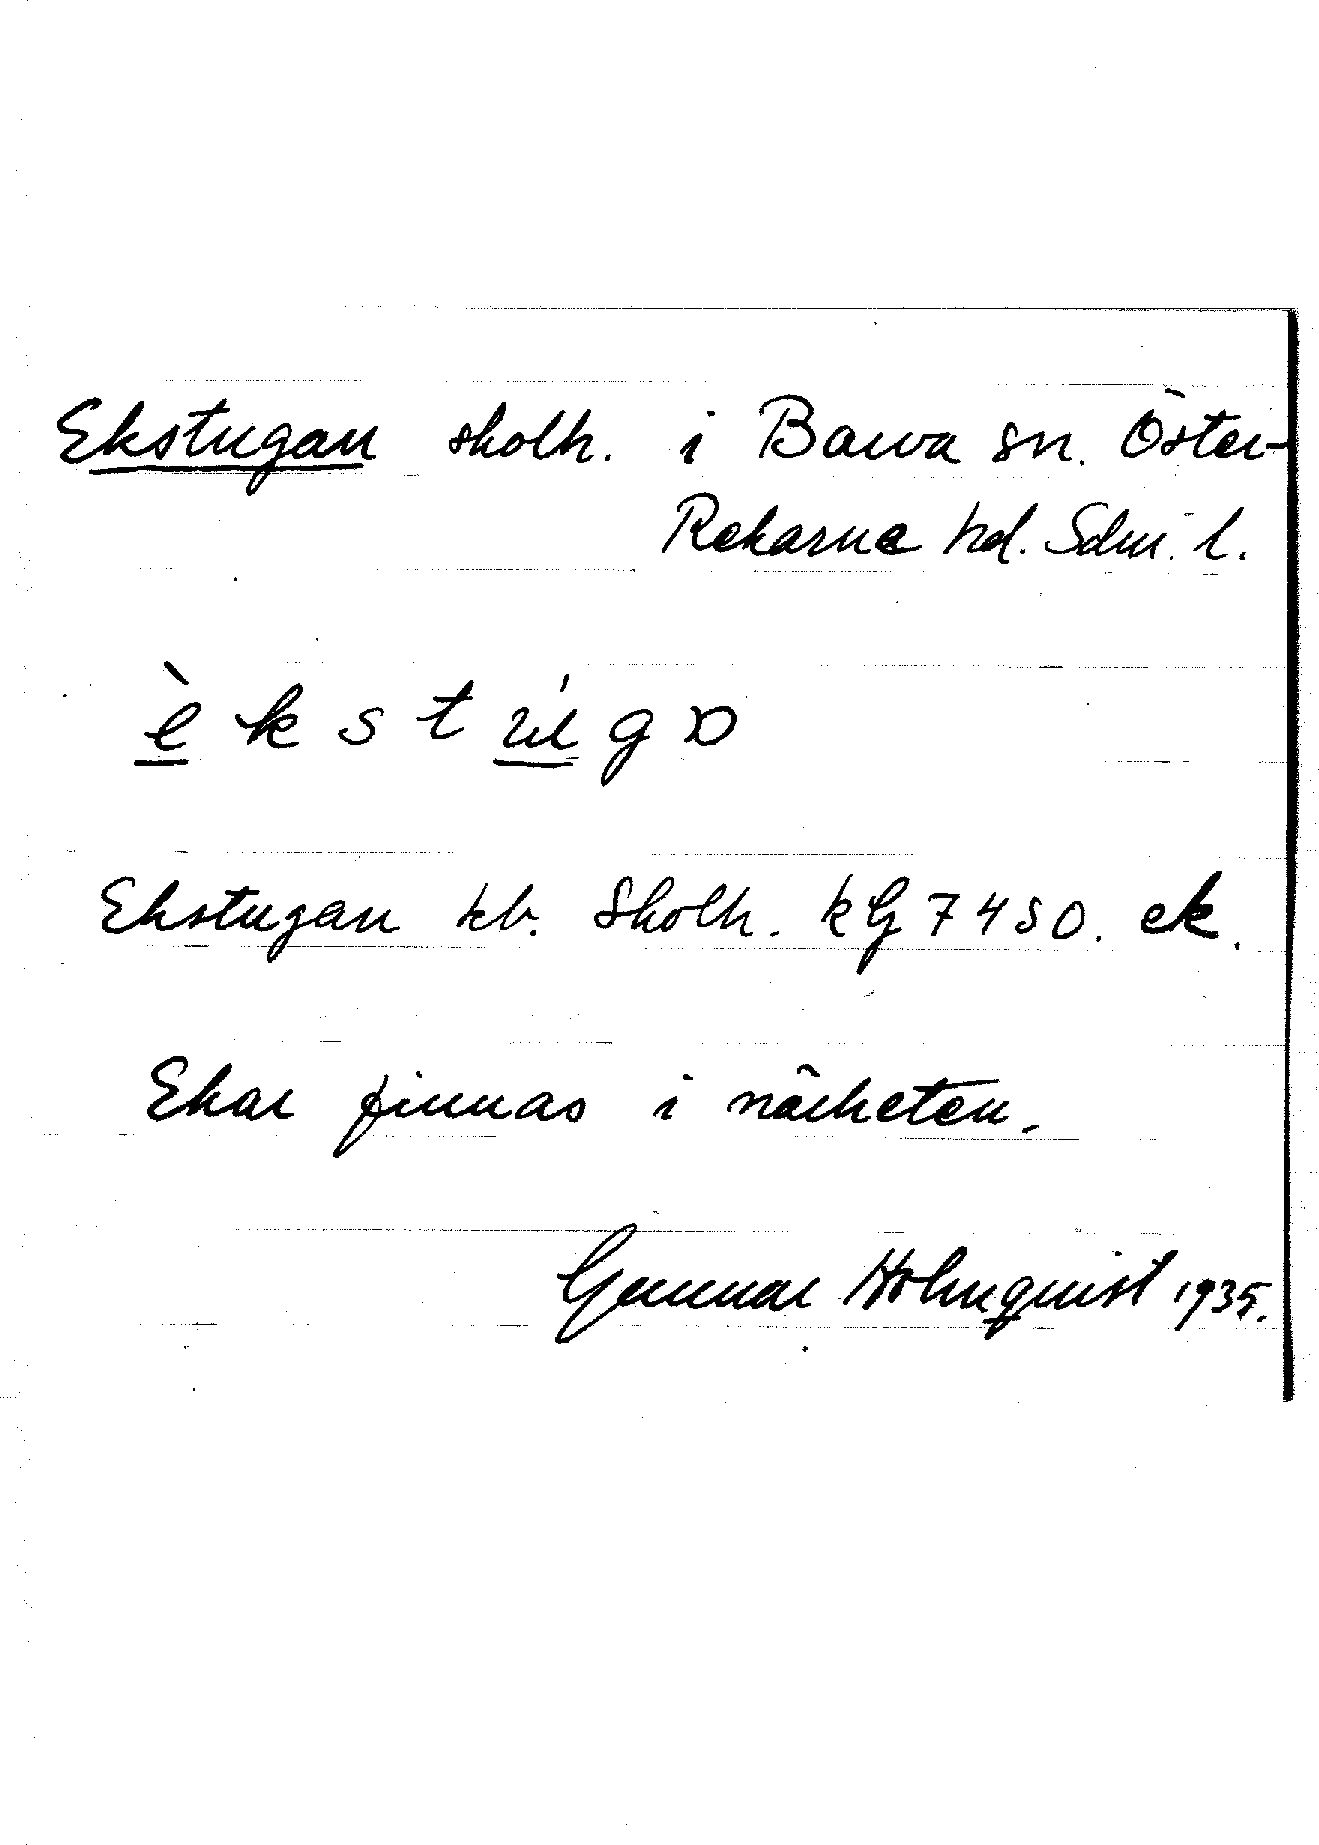 Ekstugan skolh. i Barva sn. Öster-
Rekarne hd. Sdm. l.
è k s t ú g ꭥ
Ekstugan kb. Skolh. kG 7450. ek.
Ekar finnas i närheten.
Gunnar Holmquist 1935.